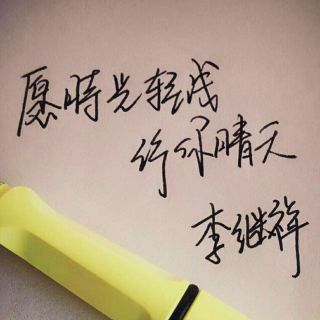 愿時光轻浅
许你晴天
李继祥